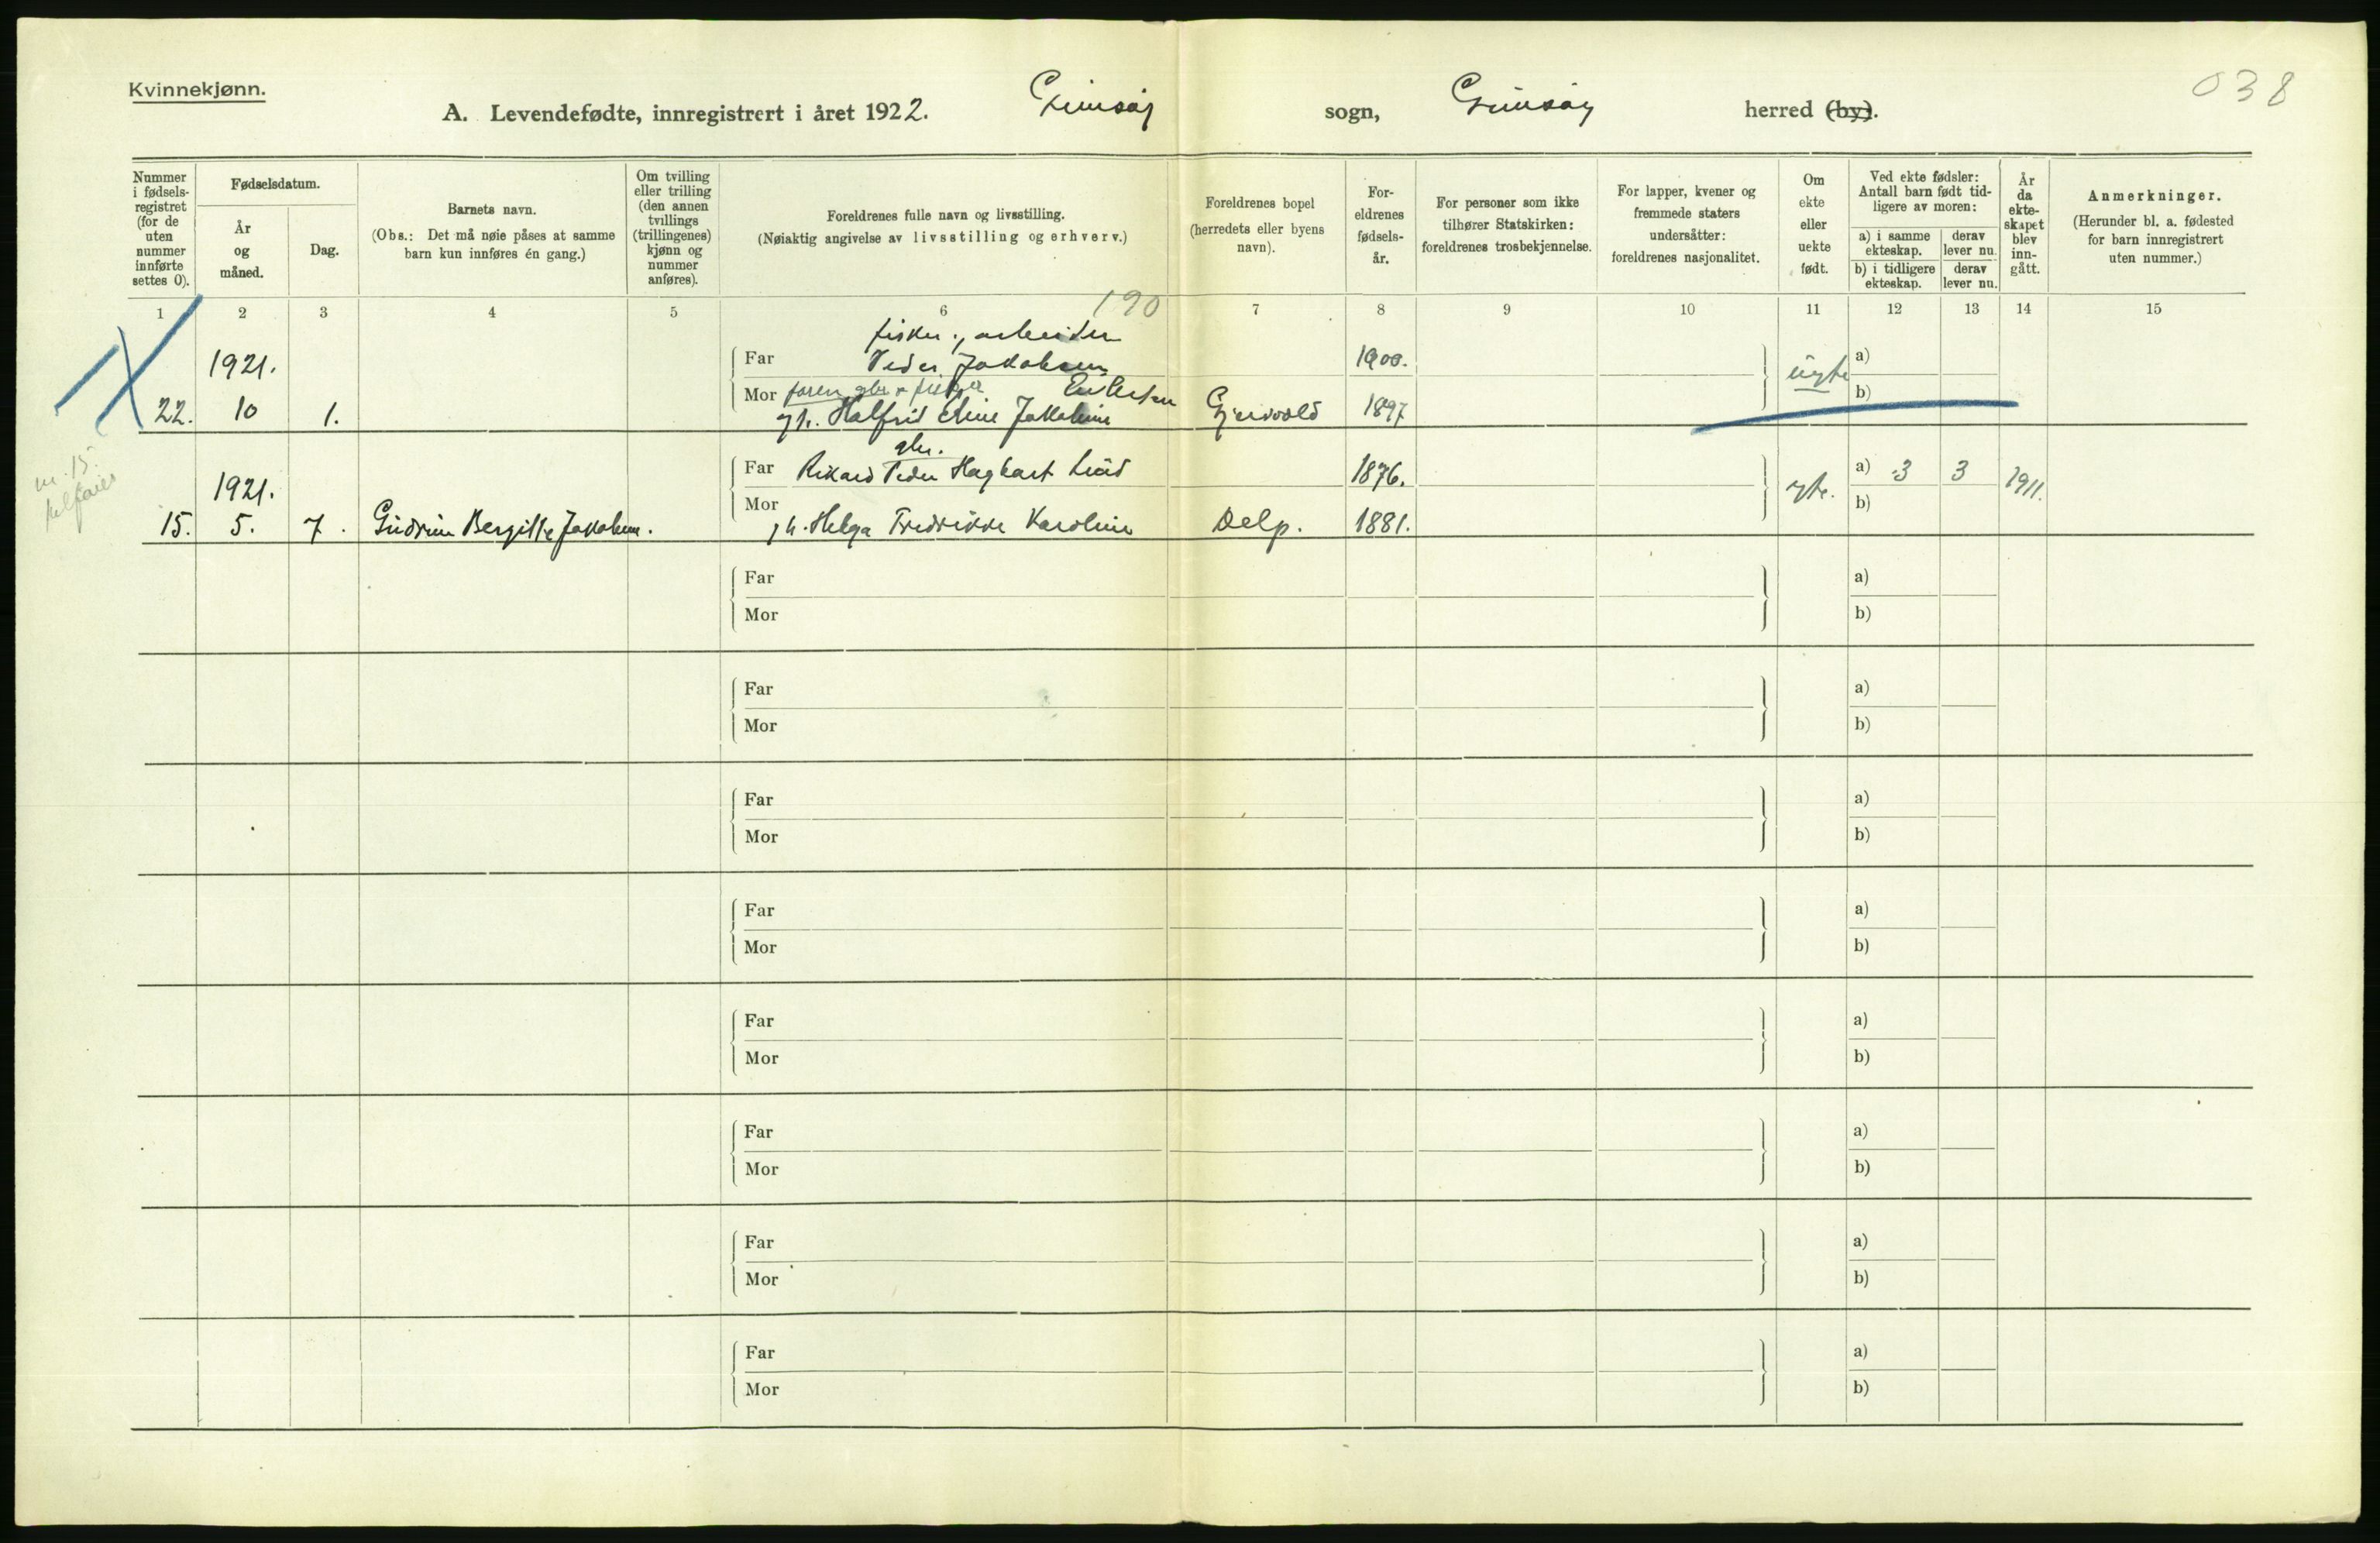 Kvinnekjønn.
038
A. Levendefødte, innregistrert i året 1922. Gimsøy sogn, Gimsøy herred (by).
Nummer i fødsels-registret (for de uten nummer innførte settes 0).
Fødselsdatum.
År og måned.
Dag.
Barnets navn.
(Obs.: Det må nøie påses at samme barn kun innføres én gang.)
Om tvilling eller trilling (den annen tvillings (trillingenes) kjønn og nummer anføres).
Foreldrenes fulle navn og livsstilling.
(Nøiaktig angivelse av livsstilling og erhverv.)
Foreldrenes bopel (herredets eller byens navn).
For-eldrenes fødsels-år.
For personer som ikke tilhører Statskirken: foreldrenes trosbekjennelse.
For lapper, kvener og fremmede staters undersåtter: foreldrenes nasjonalitet.
Om ekte eller uekte født.
Ved ekte fødsler: Antall barn født tid-ligere av moren:
a) i samme ekteskap.
derav lever nu.
b) i tidligere ekteskap.
derav lever nu.
År da ekte-skapet blev inn-gått.
Anmerkninger.
(Herunder bl. a. fødested for barn innregistrert uten nummer.)
1 2 3 4 5 6 7 8 9 10 11 12 13 14 15
190
fisker, arbeider
1921. Far Peder Jakobsen 1900. uegte a)
Mor b)
22. 10 1. Halfrid Jakobine Gjersvold 1897
gbr.
1921. Far Rikard Peder Hagbart 1876. egte. a) 3 3 1911.
Mor b)
15. 5. 7. Gudrun Bergitte Jakobine. h. Helga Fredrikke Karoline Delp. 1881.
nr. 15
Far a)
Mor b)
Far a)
Mor b)
Far a)
Mor b)
Far a)
Mor b)
Far a)
Mor b)
Far a)
Mor b)
Far a)
Mor b)
Far a)
Mor b)